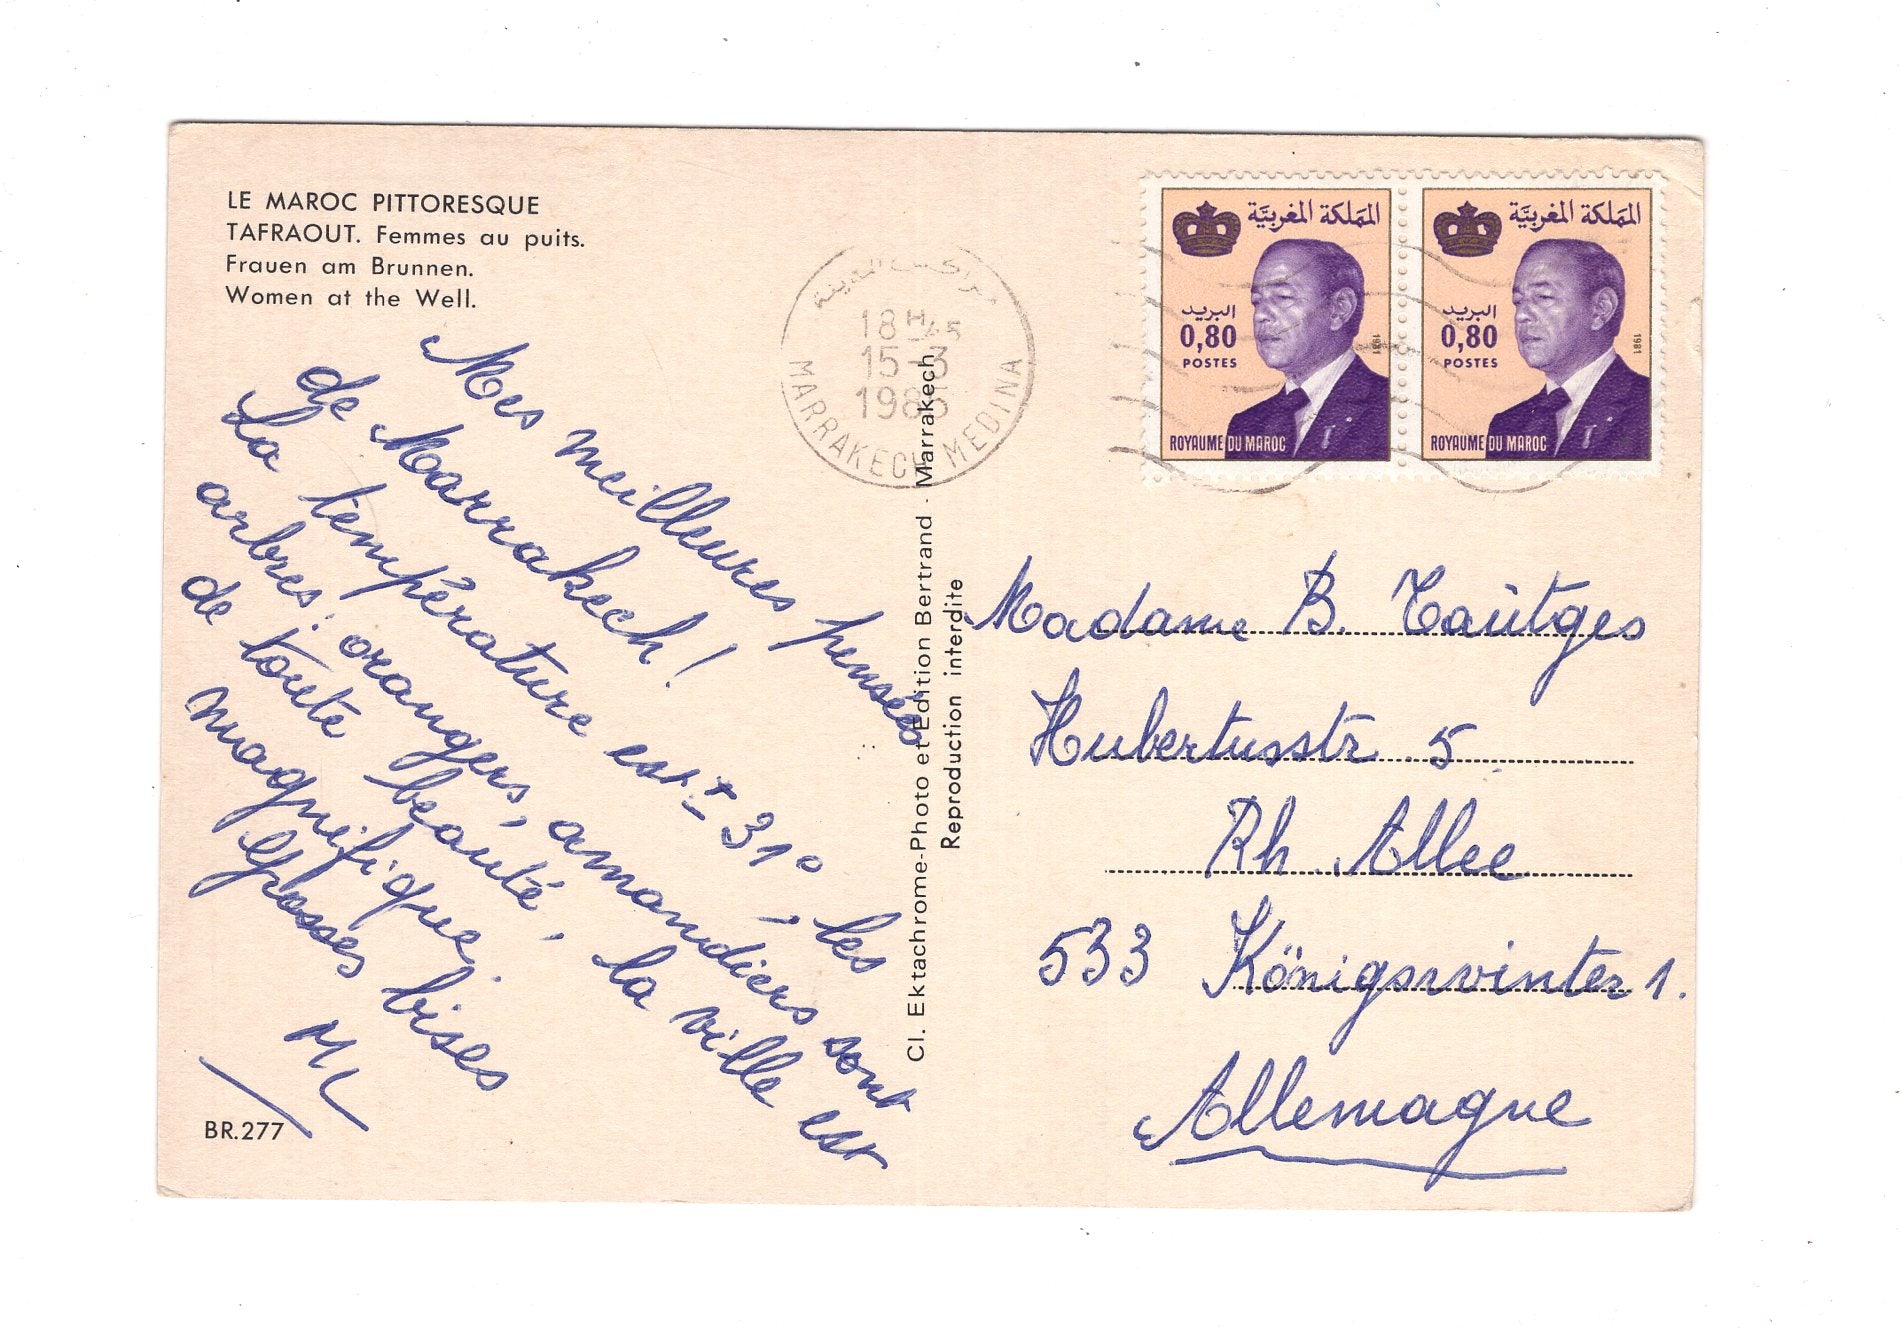 LE MAROC PITTORESQUE
TAFRAOUT. Femmes au puits.
Frauen am Brunnen.
Women at the Well.
Mes meilleures pensées
de Marrakech !
La température est ± 31°, les
arbres : orangers, amandiers sont
de toute beauté, la ville est
magnifique.
Grosses bises
BR.277
Cl. Ektachrome-Photo et Edition Bertrand - Marrakech
Reproduction interdite
مراكش المدينة
18H45
15-3
1986
MARRAKECH MEDINA
المملكة المغربية
البريد
0,80
POSTES
1981
ROYAUME DU MAROC
المملكة المغربية
البريد
0,80
POSTES
1981
ROYAUME DU MAROC
Madame B. Taütges
Hubertusstr 5
Rh. Allee
533 Königswinter 1.
Allemagne